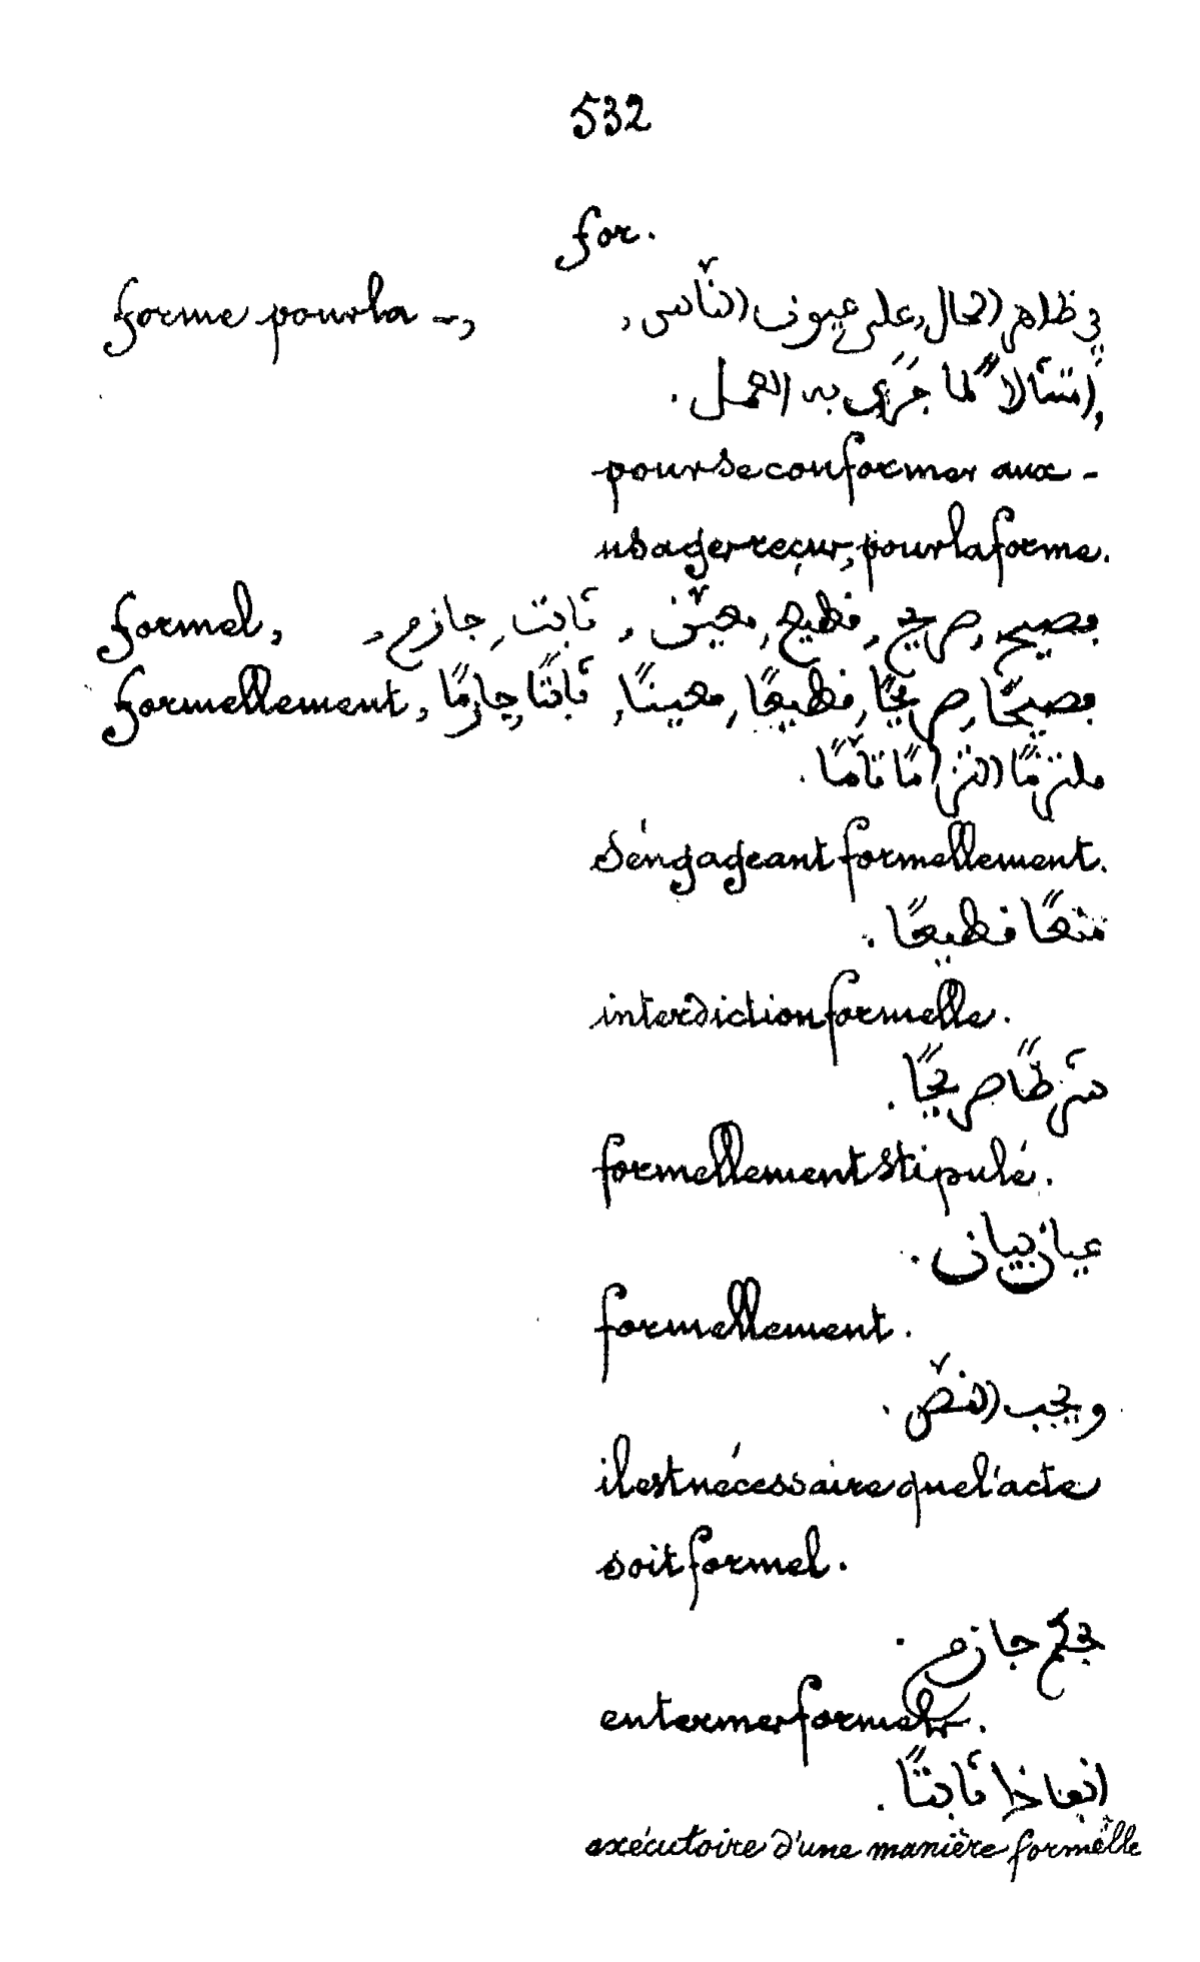 532
for.
forme pour la -, في ظاهر الحال, على عيون النّاس,
امتثالًا لما جَرَى به العمل.
pour se conformer aux -
usages reçus, pour la forme.
formel, فصيح, صريح, فطيع, معيّن, ثابت, جازم,
formellement, فصيحًا, صريحًا, فطيعًا, معينًا, ثابتًا, جازمًا,
ملتزمًا التزامًا تامًّا.
s'engageant formellement.
منعًا فطيعًا.
interdiction formelle.
شرطًا صريحًا.
formellement stipulé.
عيان بيان.
formellement.
ويجب النصّ.
il est nécessaire que l'acte
soit formel.
بحكم جازم.
en termes formels.
انفاذا ثابتًا.
exécutoire d'une manière formelle